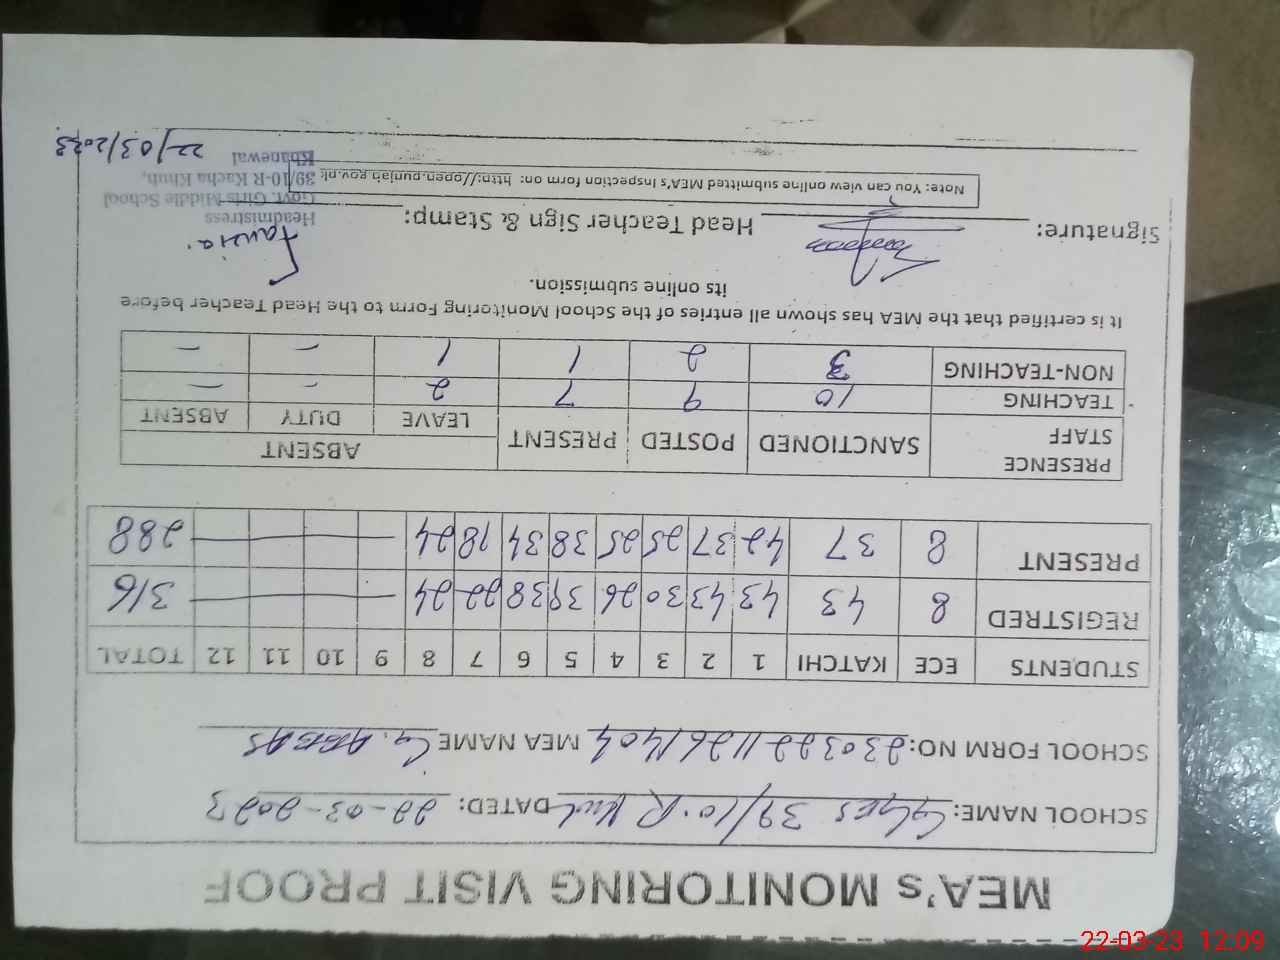 MEA's MONITORING VISIT PROOF
SCHOOL NAME: 39/10-R DATED: 22-03-2023
SCHOOL FORM NO: 23032211261404 MEA NAME G. ABBAS
STUDENTS ECE KATCHI 1 2 3 4 5 6 7 8 9 10 11 12 TOTAL
REGISTRED 8 43 43 43 30 26 39 38 22 24 316
PRESENT 8 37 42 37 25 25 38 34 18 24 288
PRESENCE STAFF SANCTIONED POSTED PRESENT ABSENT
LEAVE DUTY ABSENT
TEACHING 10 9 7 2 - -
NON-TEACHING 3 2 1 1 - -
It is certified that the MEA has shown all entries of the School Monitoring Form to the Head Teacher before
its online submission.
Signature: Head Teacher Sign & Stamp:
Fauzia
Headmistress
Govt. Girls Middle School
39/10-R Kacha Khuh,
Khanewal
22/03/2023
Note: You can view online submitted MEA's Inspection form on: http://open.punjab.gov.pk
22-03-23 12:09